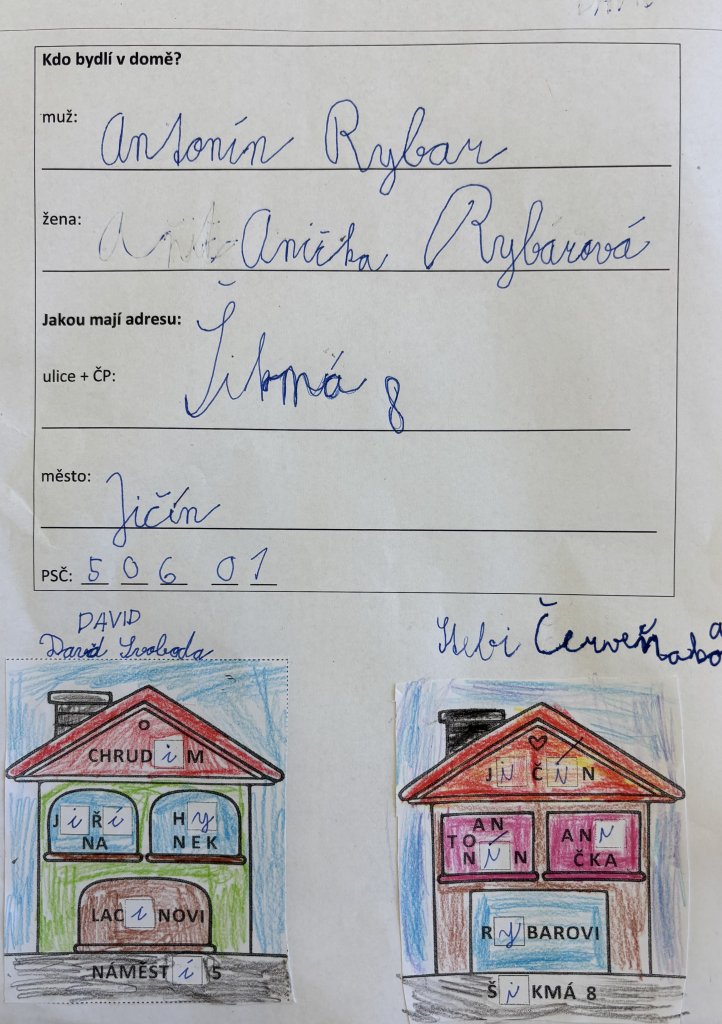 Kdo bydlí v domě?
muž: Antonín Rybar
žena: Anička Rybárová
Jakou mají adresu:
ulice + ČP: Šikmá 8
město: Jičín
PSČ: 5 0 6 0 1
DAVID
David Svoboda
CHRUDiM
JiŘi Hy
NA NEK
LACiNOVI
NÁMĚSTí 5
JiČíN
AN
TO ANi
NíN ČKA
RyBAROVI
ŠiKMÁ 8